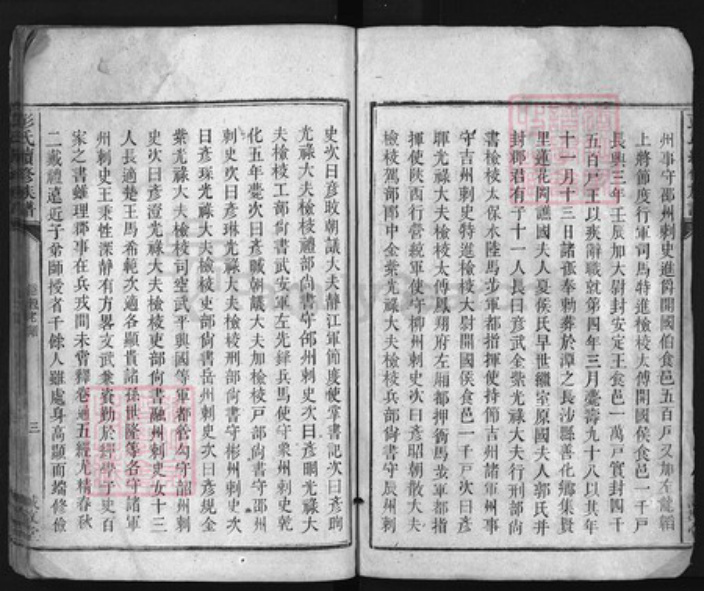 州事守邵州刺史進爵開國伯食邑五百戶又加左龍韜
上將節度行軍司馬特進檢校太傅開國侯食邑一千戶
長興三年壬辰加大尉封安定王食邑一萬戶實封四千
五百戶王以疾辭職就第四年三月薨壽九十八以其年
十一月十三日諸孤奉勅葬於潭之長沙縣善化鄉集賢
里蓮花岡譙國夫人夏侯氏早世繼室原國夫人郭氏并
封郡君有子十一人長曰彥武金紫光祿大夫行刑部尚
書檢校太保水陸馬步軍都指揮使持節吉州諸軍州事
守吉州刺史特進檢校大尉開國侯食邑一千戶次曰彥
暉光祿大夫檢校太傅鳳翔府左廂都押衙馬步軍都指
揮使陝西行營統軍使守柳州刺史次曰彥昭朝散大夫
檢校駕部郎中金紫光祿大夫檢校兵部尚書守辰州刺
史次曰彥敃朝議大夫靜江軍節度使掌書記次曰彥昫
光祿大夫檢校禮部尚書守邵州刺史次曰彥𣇄光祿大
夫檢校工部尚書武安軍左先鋒兵馬使守象州刺史乾
化五年薨次曰彥瑊朝議大夫加檢校戶部尚書守邵州
刺史次曰彥琳光祿大夫檢校刑部尚書守彬州刺史次
曰彥琛光祿大夫檢校吏部尚書岳州刺史次曰彥規金
紫光祿大夫檢校司空武平興國等軍都管勾守韶州刺
史次曰彥澄光祿大夫檢校吏部尚書融州刺史女十三
人長適楚王馬希範次適各顯貴諸孫世隆等各守諸軍
州刺史王秉性深靜有方畧文武兼資勤於經學子史百
家之書雖理郡事在兵戎間未嘗釋卷通五經尤精春秋
二戴禮遠近子弟師授者千餘人雖處身高顯而端修儉
彭氏續修族譜
三